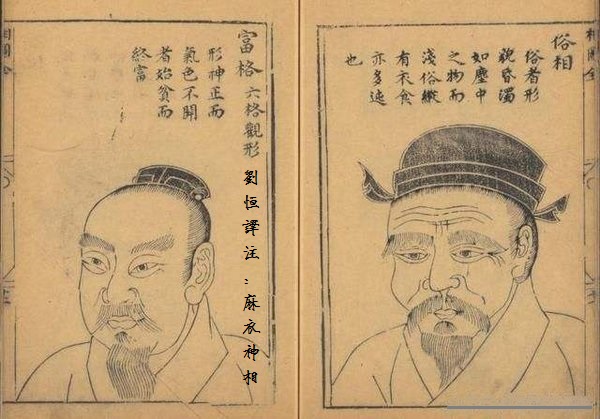 相圖全
俗相
俗者形
貌昏濁
如塵中
之物而
淺俗縱
有衣食
亦多迍
也
富格 六格觀形
形神正而
氣色不開
者始貧而
終富
劉恒譯注：麻衣神相
相圖全